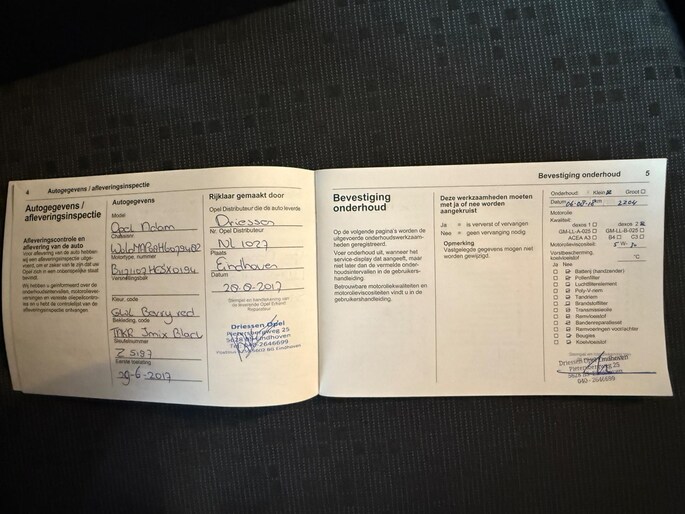 4 Autogegevens / afleveringsinspectie
Autogegevens /
afleveringsinspectie
Afleveringscontrole en
aflevering van de auto
Voor aflevering van de auto hebben
wij een afleveringsinspectie uitge-
voerd, om er zeker van te zijn dat uw
Opel zich in een onberispelijke staat
bevindt.
Wij hebben u geïnformeerd over de
onderhoudsintervallen, motorolie-
Autogegevens
Model
Opel Adam
Motortype, nummer
Versnellingsbak
Kleur, code
Berry red
Bekleding, code
TAKR Jmix Black
Sleutelnummer
Z 5197
Eerste toelating
29-6-2017
Rijklaar gemaakt door
Opel Distributeur die de auto leverde
Driessen
Nr. Opel Distributeur
NL 1027
Plaats
Eindhoven
Datum
Stempel en handtekening van
de leverende Opel Erkend
Reparateur
Driessen Opel
Pietersbergweg 25
5628 BS Eindhoven
Tel. 040-2646699
Bevestiging onderhoud 5
Bevestiging
onderhoud
Op de volgende pagina's worden de
uitgevoerde onderhoudswerkzaam-
heden geregistreerd.
Voer onderhoud uit, wanneer het
service-display dat aangeeft, maar
niet later dan de vermelde onder-
houdsintervallen in de gebruikers-
handleiding.
Betrouwbare motoroliekwaliteiten en
motorolieviscositeiten vindt u in de
gebruikershandleiding.
Deze werkzaamheden moeten
met ja of nee worden
aangekruist
Ja = is ververst of vervangen
Nee = geen vervanging nodig
Opmerking
Vastgelegde gegevens mogen niet
worden gewijzigd.
Onderhoud: Klein Groot
Datum 06-08-18 km 2204
Motorolie
Kwaliteit:
dexos 1 dexos 2
GM-LL-A-025 GM-LL-B-025
ACEA A3 B4 C3
Motorolieviscositeit: 5 W- 30
Vorstbescherming,
koelvloeistof °C
Ja Nee
Batterij (handzender)
Pollenfilter
Luchtfilterelement
Poly-V-riem
Tandriem
Brandstoffilter
Transmissieolie
Remvloeistof
Bandenreparatieset
Remvoeringen voor/achter
Bougies
Koelvloeistof
Driessen Opel Eindhoven
Pietersbergweg 25
5628 BS Eindhoven
040-2646699